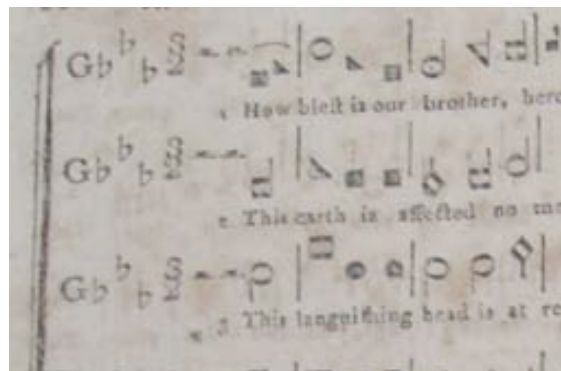 1 How bleſt is our brother, here
2 This earth is affected no mo
3 This languiſhing head is at re